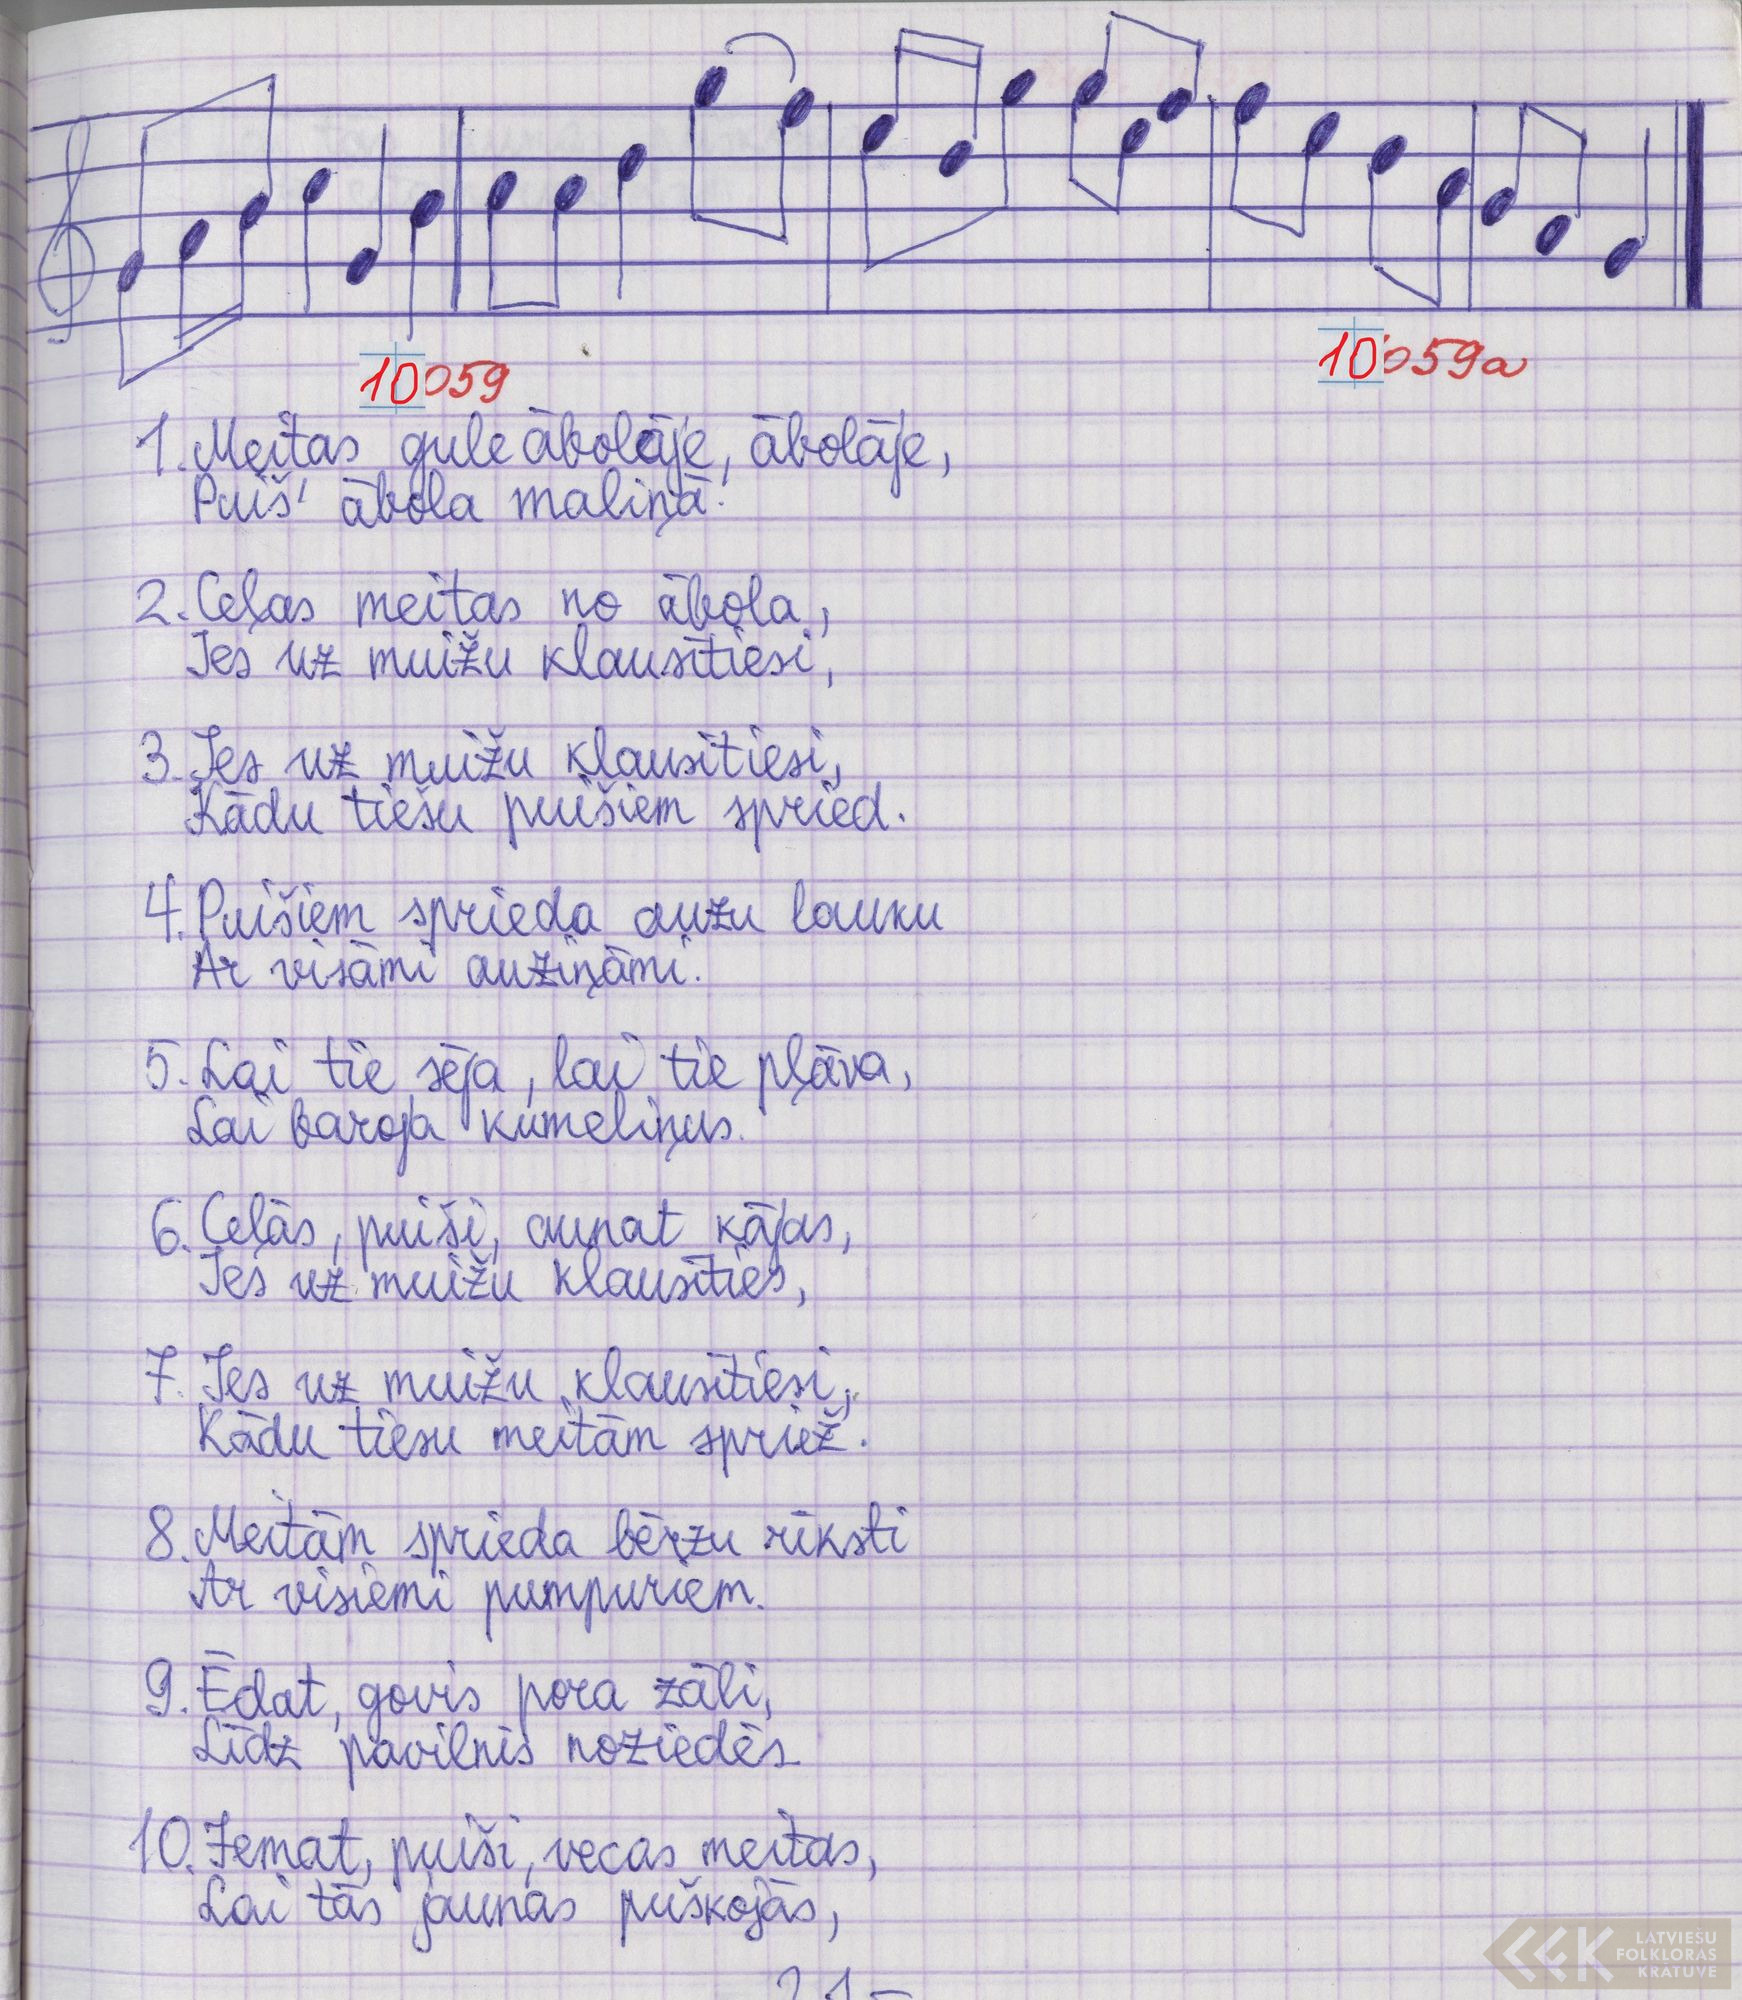 10059 10059a
1. Meitas gule ābolāje, ābolāje,
Puiš' ābola maliņā.
2. Ceļas meitas no ābola,
Ies uz muižu klausītiesi,
3. Ies uz muižu klausītiesi,
Kādu tiešu puišiem spried.
4. Puišiem sprieda auzu lauku
Ar visāmi auziņāmi.
5. Lai tie sēja, lai tie pļāva,
Lai baroja kumeliņus.
6. Ceļās, puiši, aunat kājas,
Ies uz muižu klausīties,
7. Ies uz muižu klausītiesi,
Kādu tiesu meitām spriež.
8. Meitām sprieda bērzu rīksti
Ar visiemi pumpuriem.
9. Ēdat, govis pora zāli,
Līdz pavilnis noziedēs.
10. Jemat, puiši, vecas meitas,
Lai tās jaunas puškojās,
LATVIEŠU
FOLKLORAS
KRĀTUVE